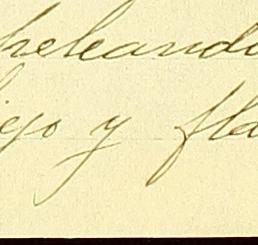 heleando
iejo y fla